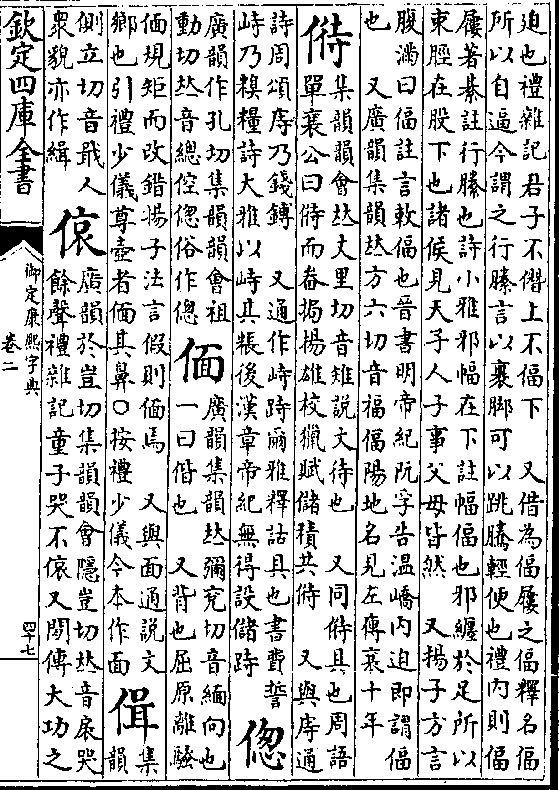 迫也禮雜記君子不僭上不偪下　又借為偪屨之偪釋名偪
所以自逼今謂之行縢言以裹脚可以跳騰輕便也禮内則偪
屨著綦註行縢也詩小雅邪幅在下註幅偪也邪纏於足所以
束脛在股下也諸侯見天子人子事父母皆然　又揚子方言
腹滿曰偪註言敕偪也晉書明帝紀阮孚告溫嶠内迫即謂偪
也　又廣韻集韻𠀤方六切音福偪陽地名見左傳襄十年
偫
集韻韻會𠀤丈里切音雉說文待也　又同偫具也周語
單襄公曰偫而畚挶揚雄校獵賦儲積共偫　又與庤通
詩周頌庤乃錢鎛　又通作峙跱爾雅釋詁具也書費誓
峙乃糗糧詩大雅以峙其粻後漢章帝紀無得設儲跱
偬
廣韻作孔切集韻韻會祖
動切𠀤音總倥偬俗作偬
偭
廣韻集韻𠀤彌兗切音緬向也
一曰偝也　又背也屈原離騷
偭規矩而改錯揚子法言假則偭焉　又與面通說文
鄉也引禮少儀尊壺者偭其鼻○按禮少儀今本作面
偮
集
韻
側立切音戢人
衆貌亦作緝
偯
廣韻於豈切集韻韻會隱豈切𠀤音扆哭
餘聲禮雜記童子哭不偯又間傳大功之
欽定四庫全書
御定康熙字典
卷二
四十七